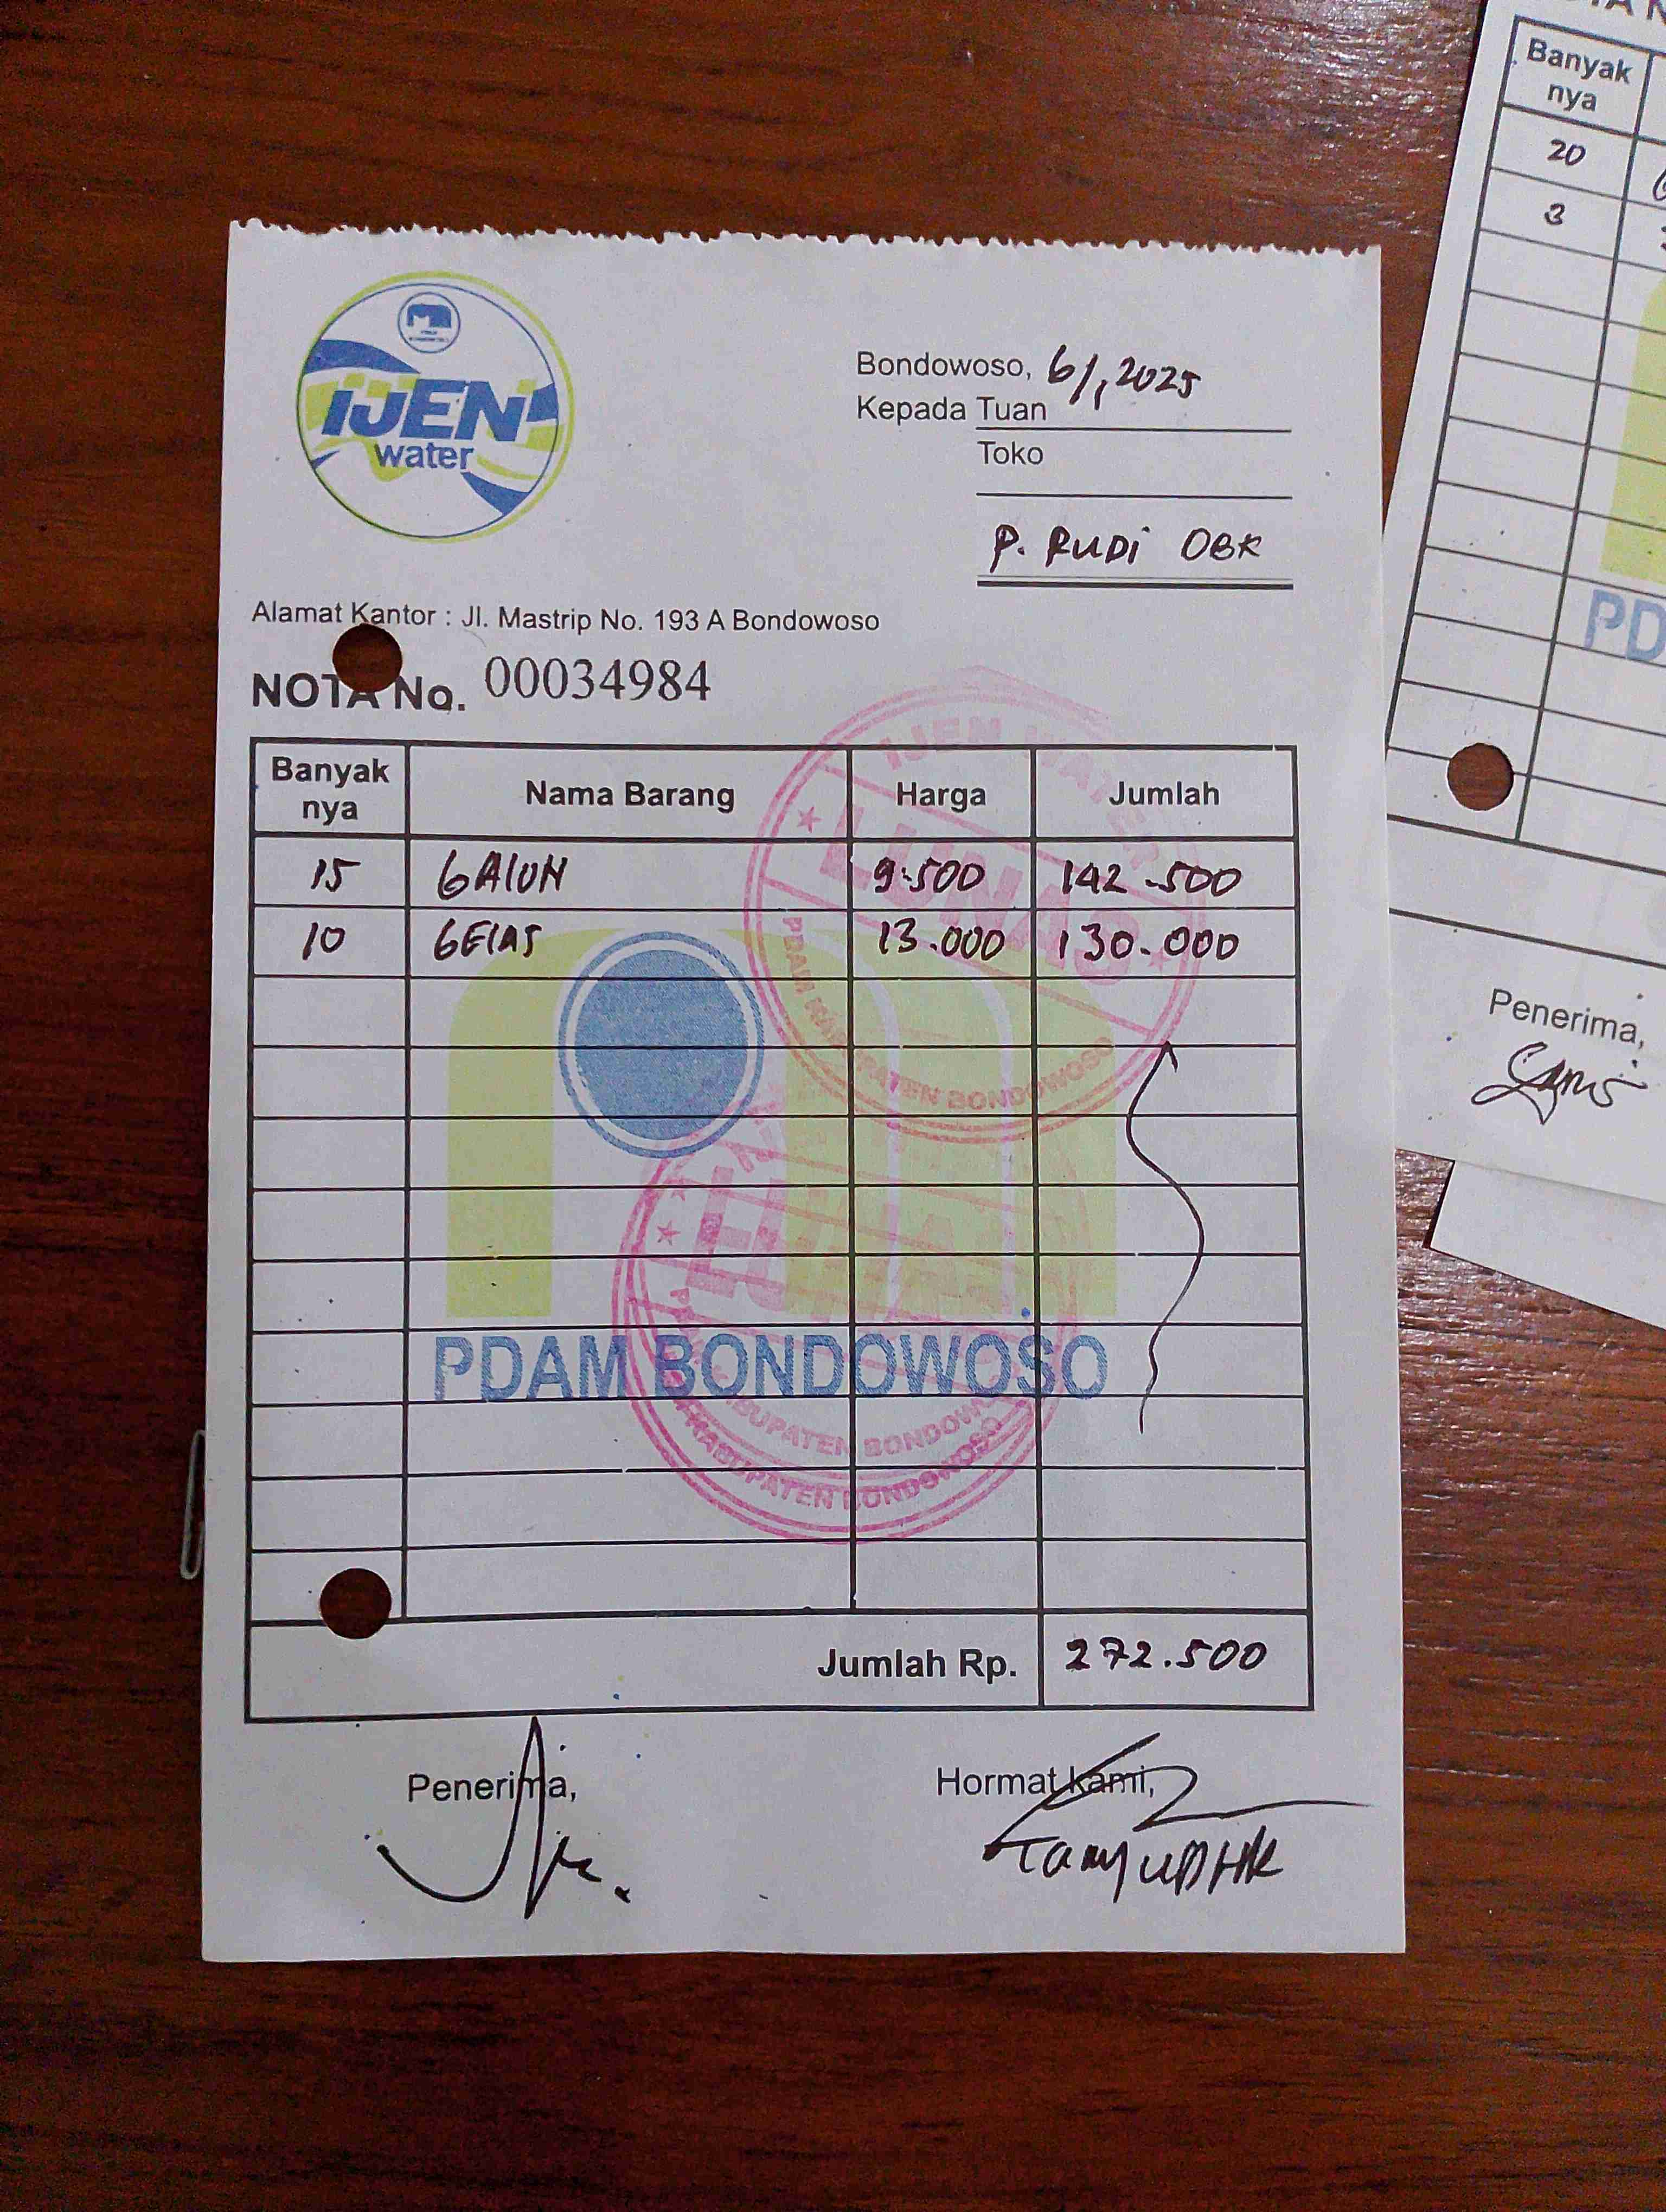 IJEN
water
Bondowoso, 6/1 2025
Kepada Tuan
Toko
P. RUDI OBK
Alamat Kantor : Jl. Mastrip No. 193 A Bondowoso
NOTA No. 00034984
Banyak nya Nama Barang Harga Jumlah
15 GALON 9.500 142.500
10 GELAS 13.000 130.000
IJEN WATER
LUNAS
PDAM KABUPATEN BONDOWOSO
LUNAS
KABUPATEN BONDOWOSO
KABUPATEN BONDOWOSO
PDAM BONDOWOSO
Jumlah Rp. 272.500
Penerima,
Hormat kami,
Banyak
nya
20
3
PD
Penerima,